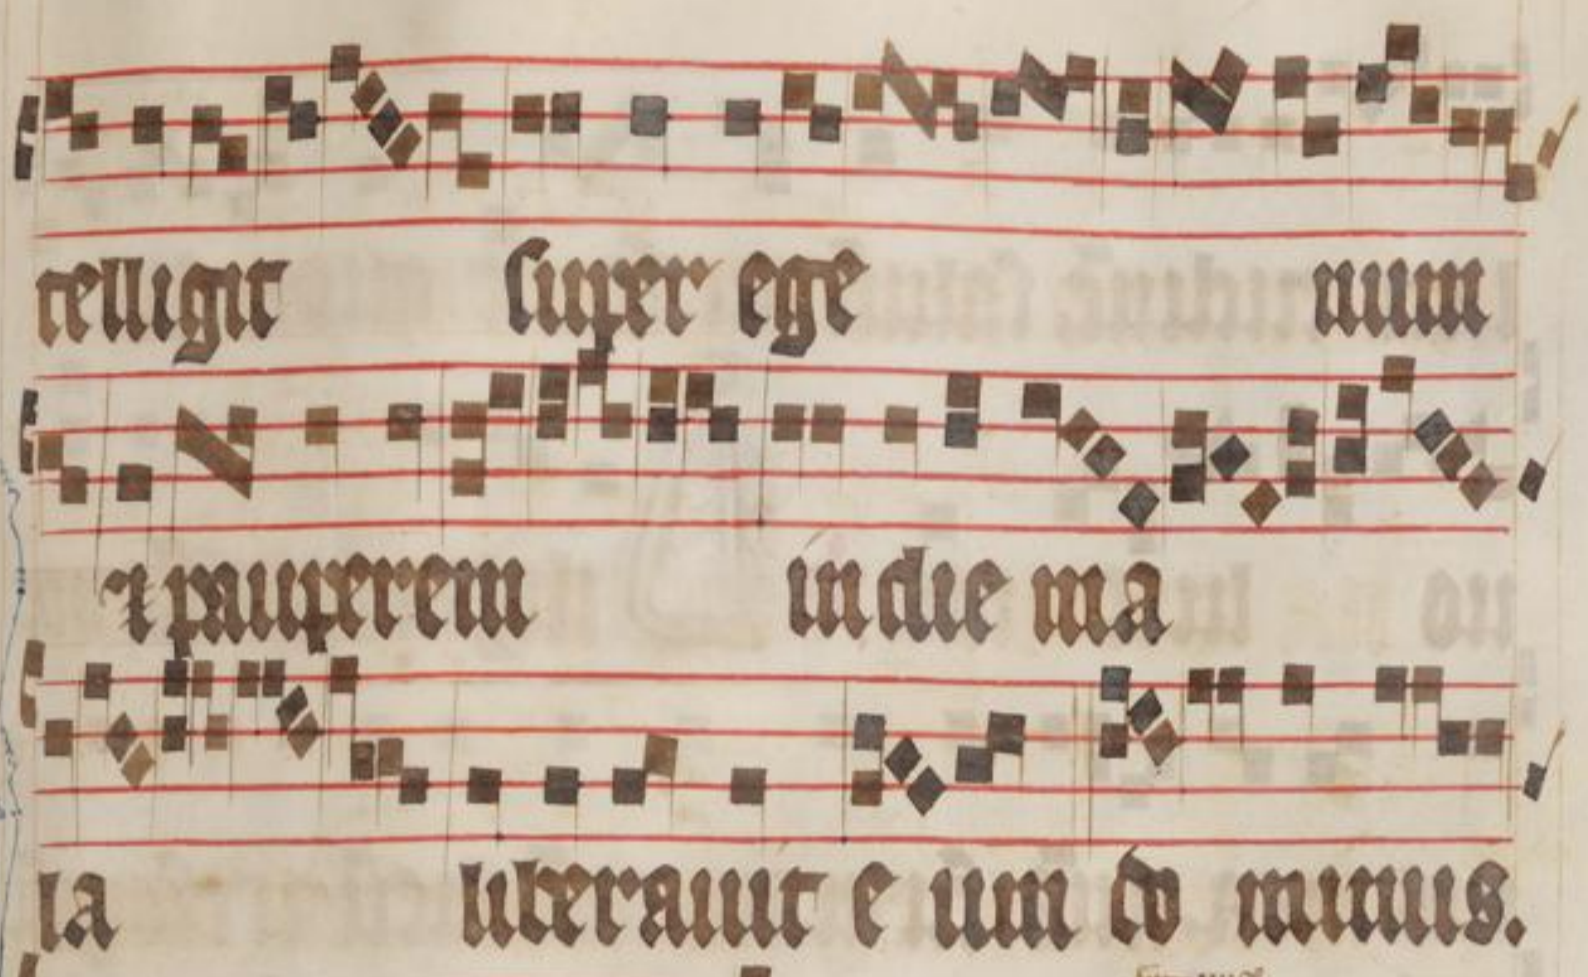 telligit super ege num
⁊ pauperem in die ma
la liberauit e um do minus.